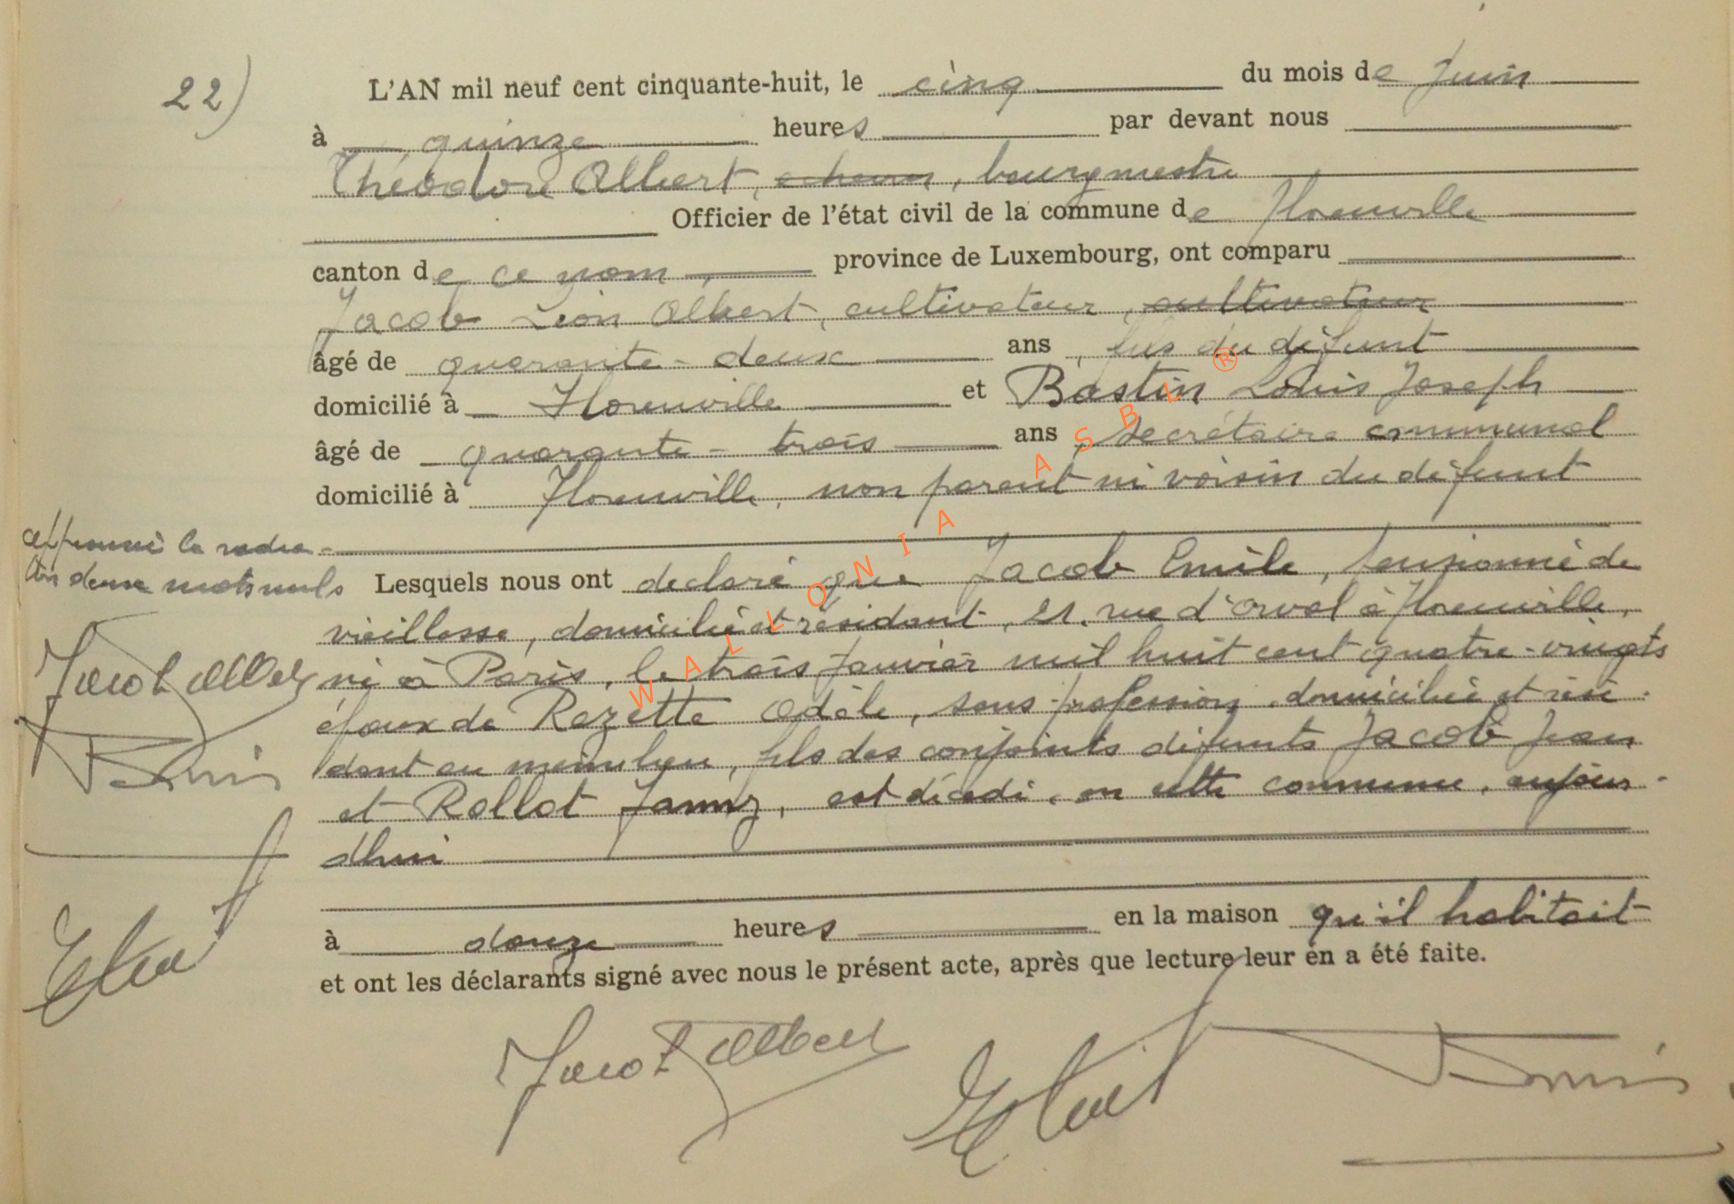 22)
L'AN mil neuf cent cinquante-huit, le cinq du mois de Juin
à quinze heures par devant nous
Théodore Albert, échevin, bourgmestre
Officier de l'état civil de la commune de Florenville
canton de ce nom province de Luxembourg, ont comparu
Jacob Léon Albert, cultivateur, cultivateur
âgé de quarante-deux ans, fils du défunt
domicilié à Florenville et Bastin Louis Joseph
âgé de quarante-trois ans, secrétaire communal
domicilié à Florenville, non parent ni voisin du défunt
approuvé la radia-
tion deux mots nuls
Lesquels nous ont déclaré que Jacob Emile, pensionné de
vieillesse, domicilié et résidant, 21, rue d'Orval à Florenville,
né à Paris, le trois Janvier mil huit cent quatre-vingts
époux de Rezette Adèle, sans profession, domiciliée et rési-
dant au même lieu, fils des conjoints défunts Jacob Jean
et Rollot Fanny, est décédé, en cette commune, aujour-
d'hui
à douze heures en la maison qu'il habitait
et ont les déclarants signé avec nous le présent acte, après que lecture leur en a été faite.
Jacob Albert
Jacob Albert
WALLONIA ASBL ®